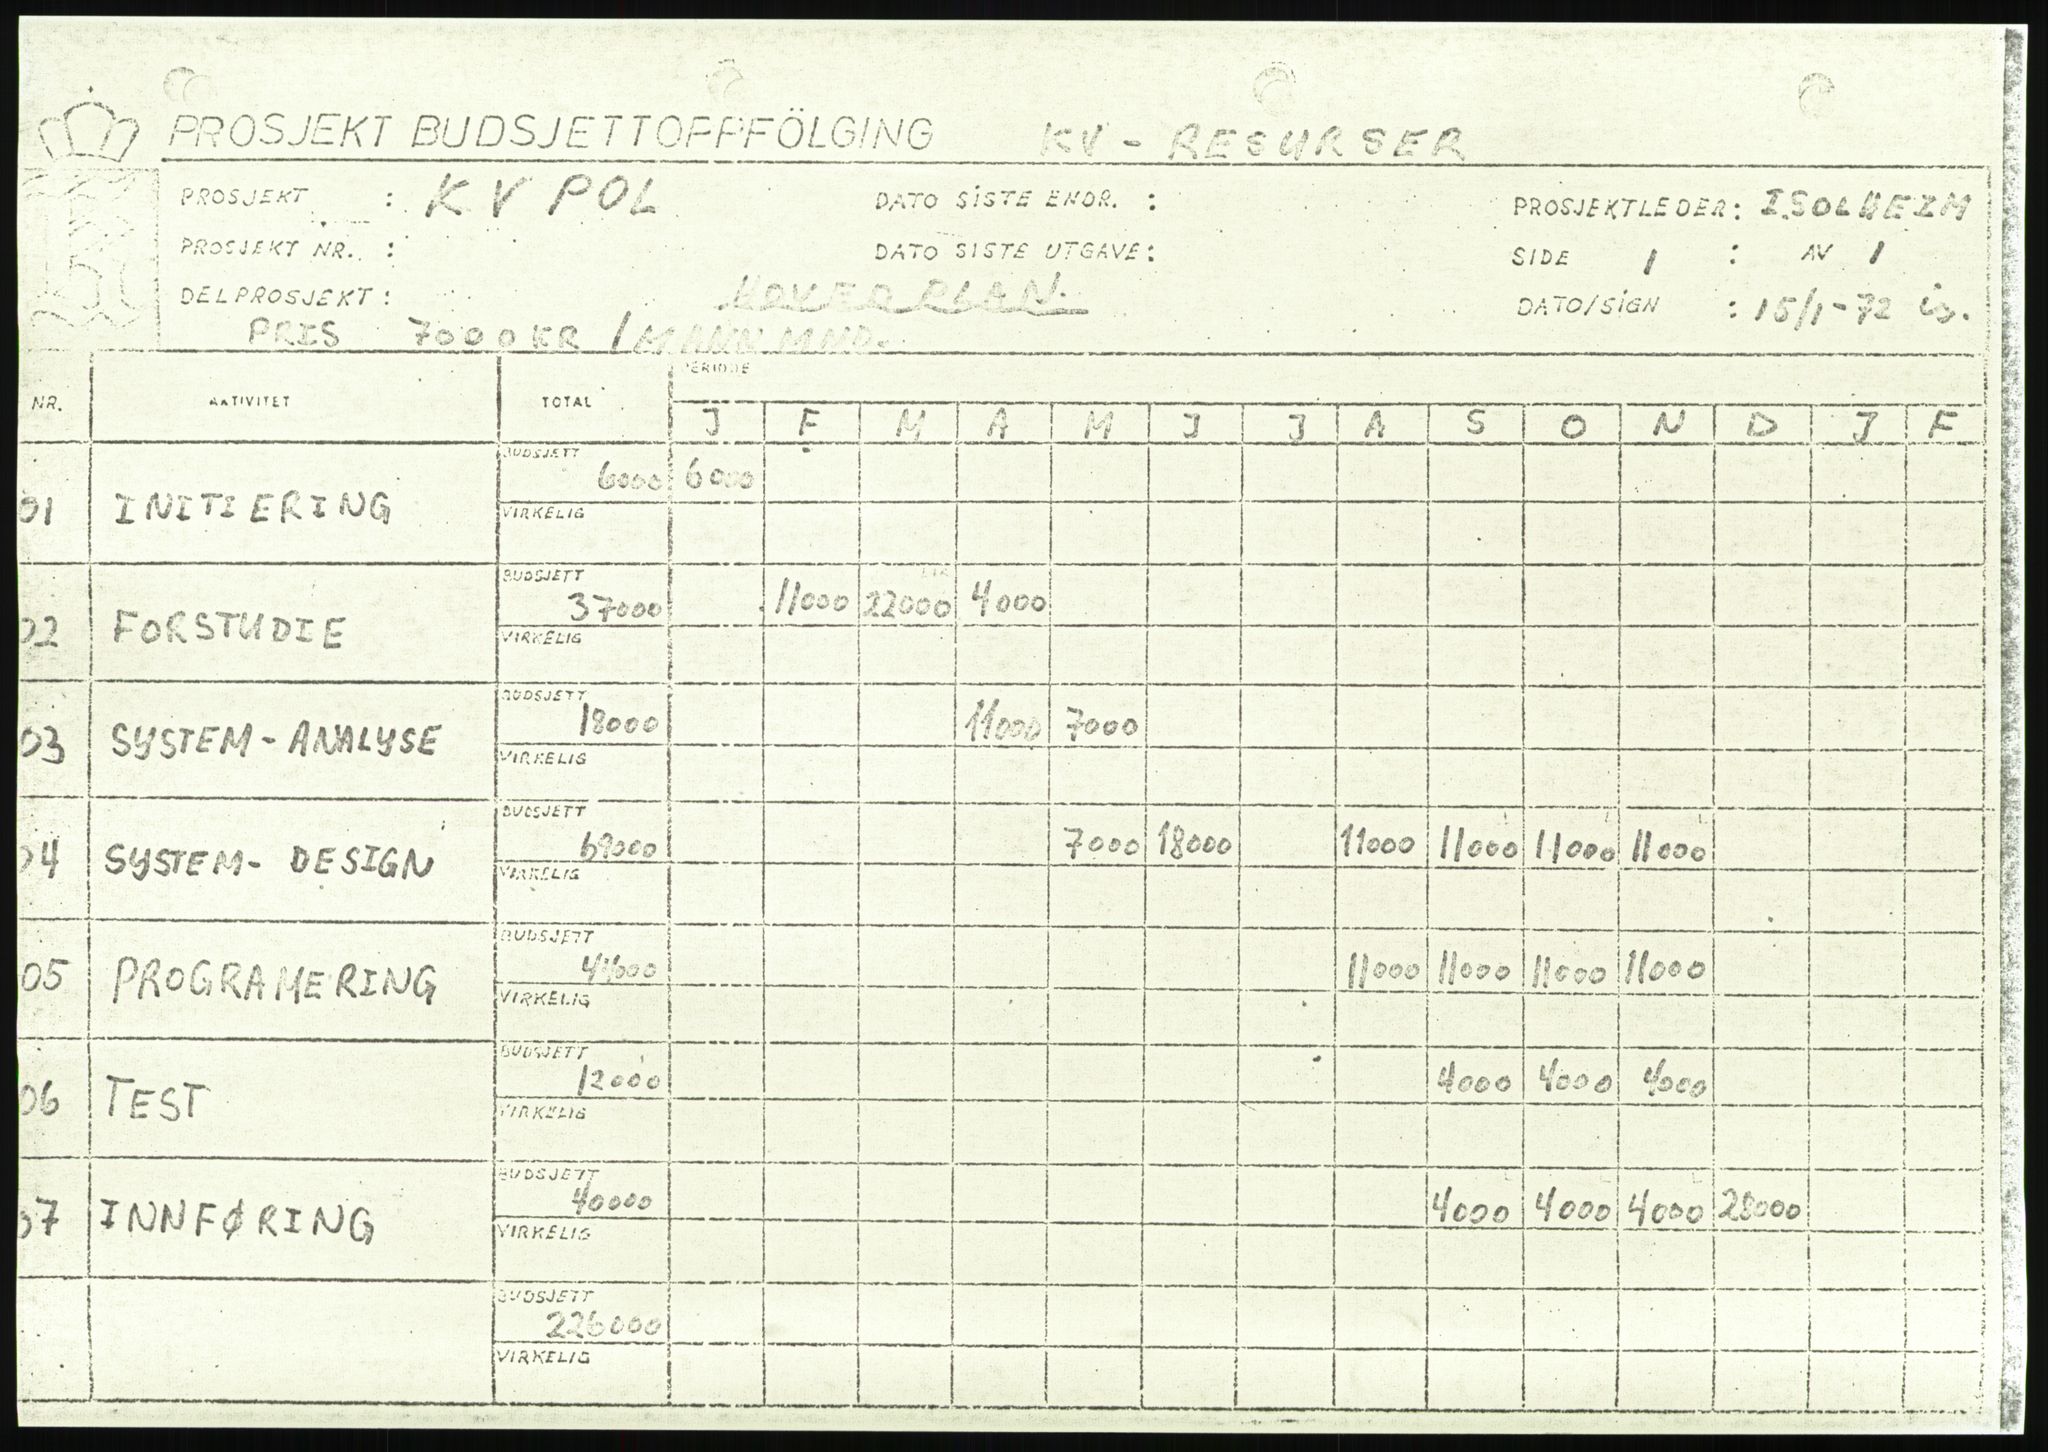 PROSJEKT BUDSJETTOPPFÖLGING KV - RESURSER
PROSJEKT : KV POL DATO SISTE ENDR. : PROSJEKTLEDER : I.SOLHEIM
PROSJEKT NR. : DATO SISTE UTGAVE : SIDE 1 : AV 1
DELPROSJEKT : HOVEDPLAN. DATO/SIGN : 15/1-72 is.
PRIS 7000 KR / MANN MND.
NR. AKTIVITET TOTAL PERIODE
J F M A M J J A S O N D J F
01 INITIERING BUDSJETT 6000 6000
VIRKELIG
02 FORSTUDIE BUDSJETT 37000 11000 22000 4000
VIRKELIG
03 SYSTEM-ANALYSE BUDSJETT 18000 11000 7000
VIRKELIG
04 SYSTEM-DESIGN BUDSJETT 69000 7000 18000 11000 11000 11000 11000
VIRKELIG
05 PROGRAMERING BUDSJETT 44000 11000 11000 11000 11000
VIRKELIG
06 TEST BUDSJETT 12000 4000 4000 4000
VIRKELIG
07 INNFØRING BUDSJETT 40000 4000 4000 4000 28000
VIRKELIG
BUDSJETT 226000
VIRKELIG